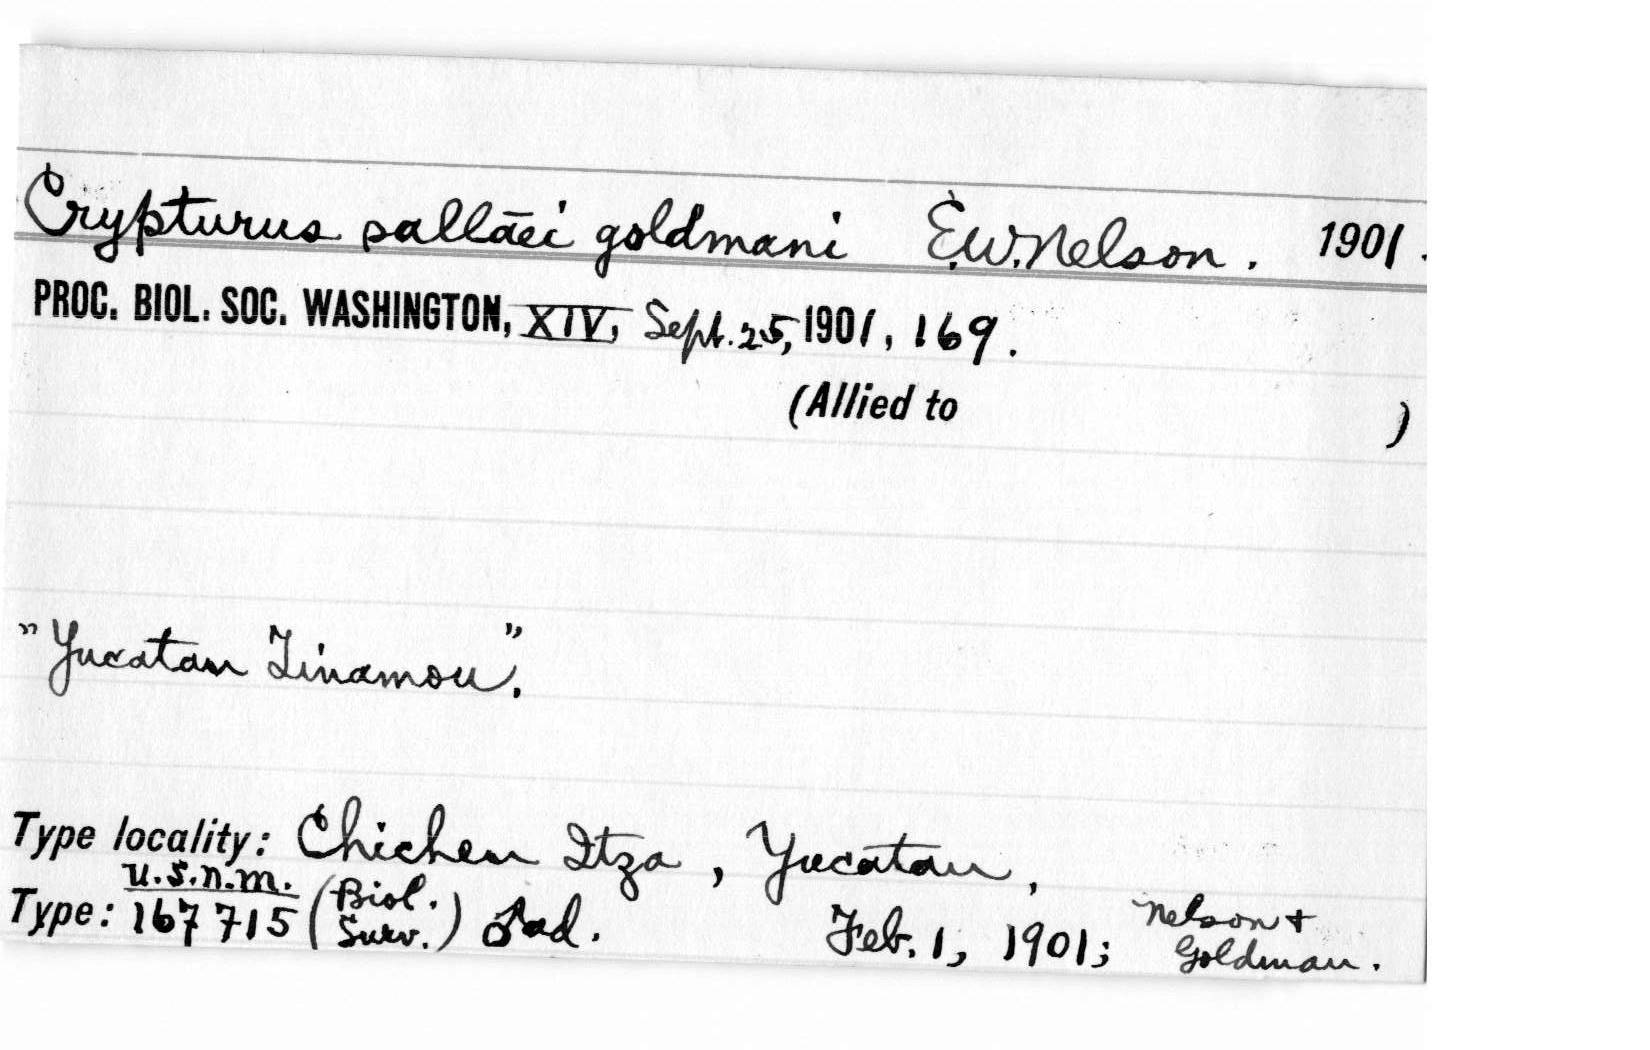 Crypturus sallaei goldmani E.W. Nelson. 1901.
PROC. BIOL. SOC. WASHINGTON, XIV, Sept. 25, 1901, 169.
(Allied to )
"Yucatan Tinamou".
Type locality: Chichen Itza, Yucatan,
U.S.N.M.
Type: 167715 (Biol. Surv.) ♂ ad. Feb. 1, 1901; Nelson + Goldman.